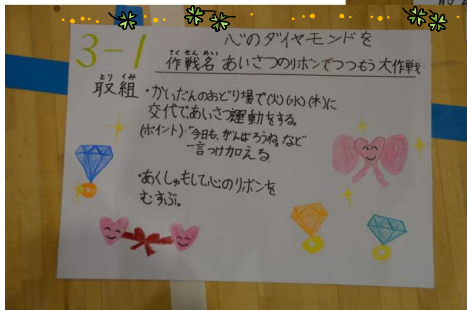 3-1
心のダイヤモンドを
さくせんめい
作戦名 あいさつのリボンでつつもう大作戦
とりくみ
取組・かいだんのおどり場で(火)(水)(木)に
交代であいさつ運動をする。
(ポイント)・"今日も、がんばろうね。など
一言つけ加える
・あくしゅもして心のリボンを
むすぶ。